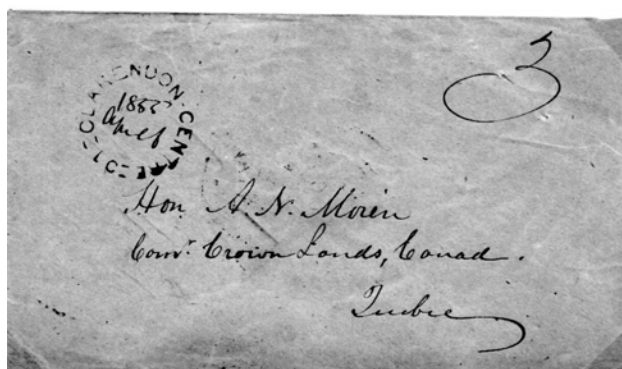 3
CLARENDON-CENTRE C.E.
April
Hon A. N. Morin
Comr. Crown Lands, Canad.
Quebec